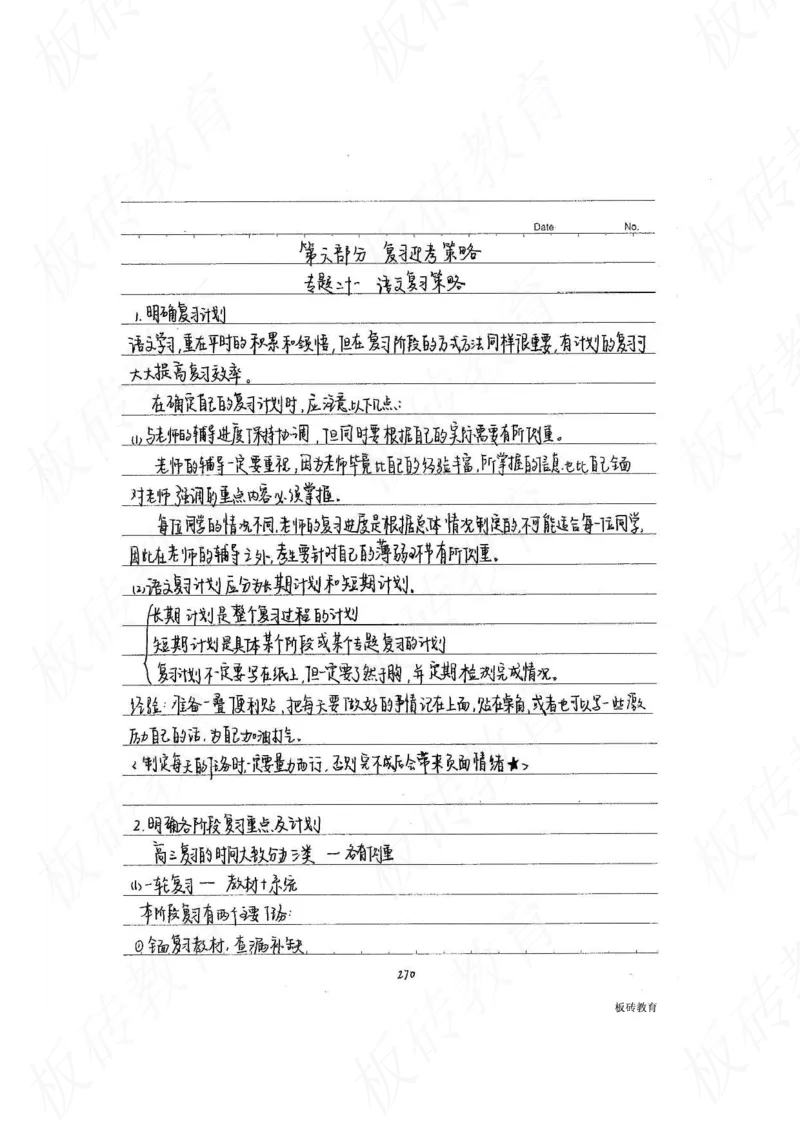 Date No.
第六部分 复习迎考策略
专题二十一 语文复习策略
1.明确复习计划
语文学习,重在平时的积累和领悟,但在复习阶段的方式方法同样很重要,有计划的复习可
大大提高复习效率。
在确定自己的复习计划时,应注意以下几点:
(1)与老师的辅导进度保持协调,但同时要根据自己的实际需要有所侧重。
老师的辅导一定要重视,因为老师毕竟比自己的经验丰富,所掌握的信息也比自己全面
对老师强调的重点内容必须掌握。
每位同学的情况不同,老师的复习进度是根据总体情况制定的,不可能适合每一位同学,
因此在老师的辅导之外,考生要针对自己的薄弱环节有所侧重。
(2)语文复习计划应分为长期计划和短期计划.
长期计划是整个复习过程的计划
短期计划是具体某个阶段或某个专题复习的计划
复习计划不一定要写在纸上,但一定要了然于胸,并定期检测完成情况。
经验:准备一叠便利贴,把每天要做好的事情记在上面,贴在桌角,或者也可以写一些激
励自己的话,为自己加油打气。
<制定每天的任务时,一定要量力而行,否则完不成后会带来负面情绪★>
2.明确各阶段复习重点及计划
高三复习的时间大致分为三类 — 各有侧重
(1)一轮复习 — 教材+系统
本阶段复习有两个主要任务:
①全面复习教材,查漏补缺
270
板砖教育